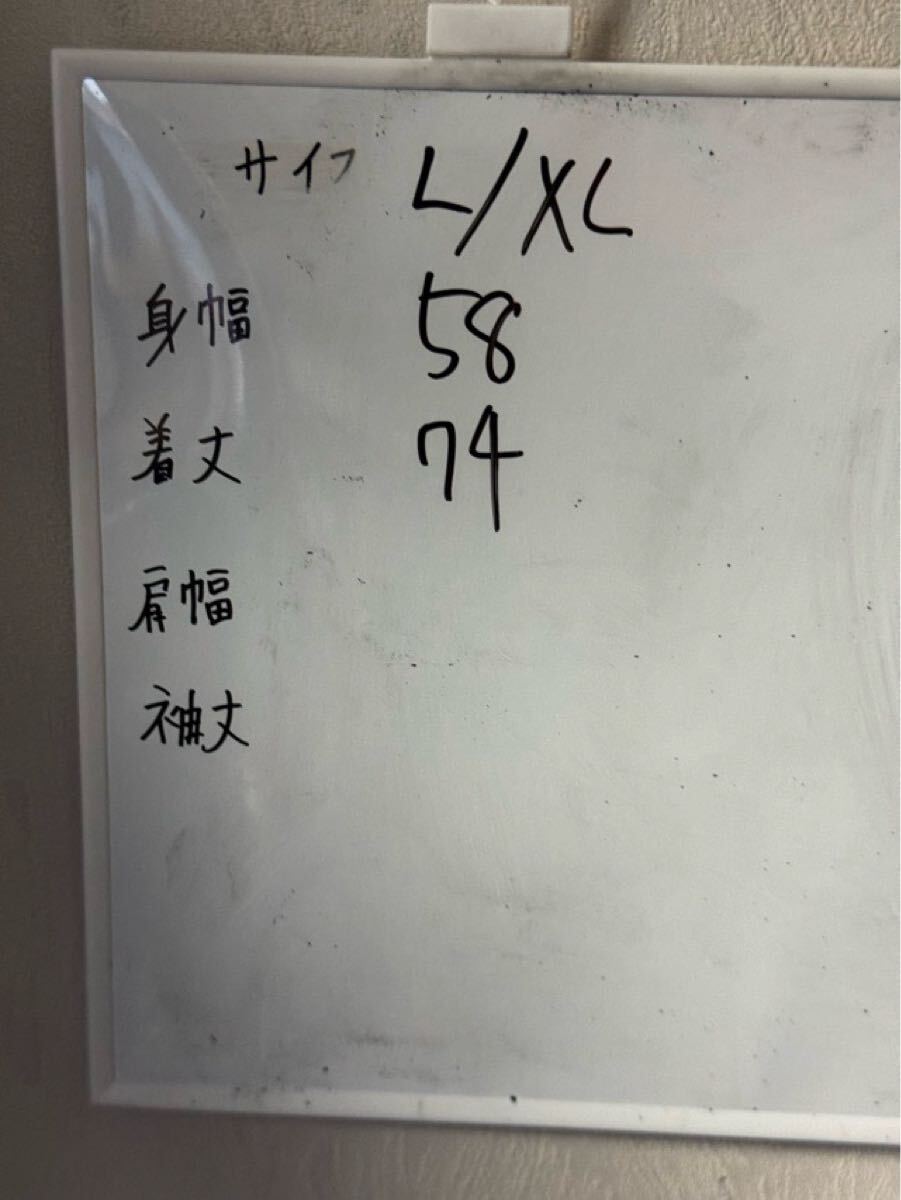 サイズ L/XL
身幅 58
着丈 74
肩幅
袖丈